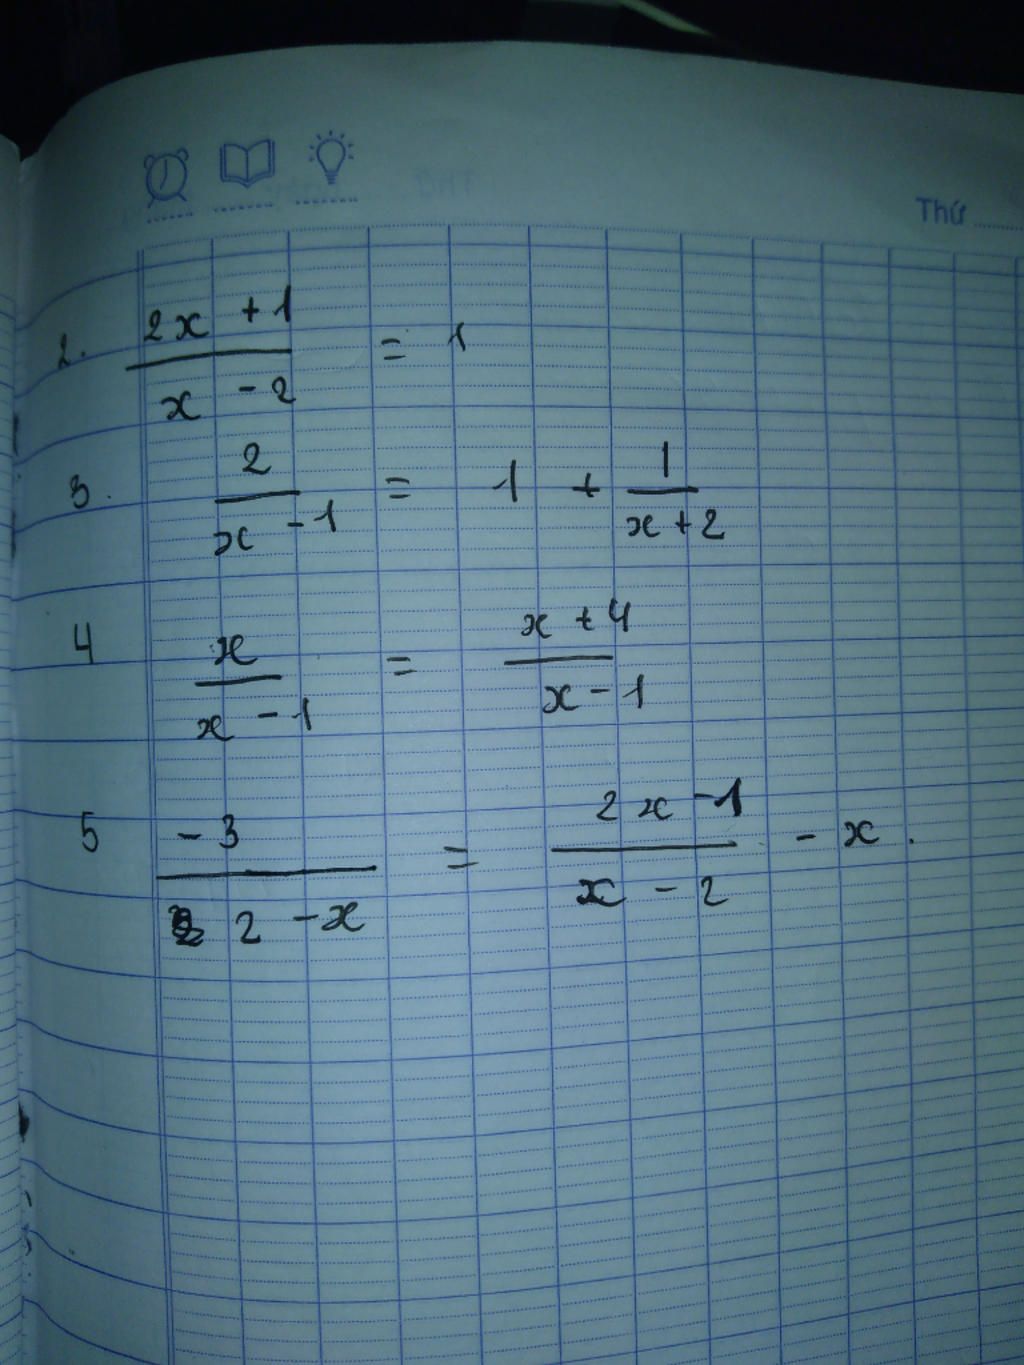 Thứ
2. (2x + 1)/(x - 2) = 1
3. 2/(x - 1) = 1 + 1/(x + 2)
4 x/(x - 1) = (x + 4)/(x - 1)
5 -3/(2 - x) = (2x - 1)/(x - 2) - x.